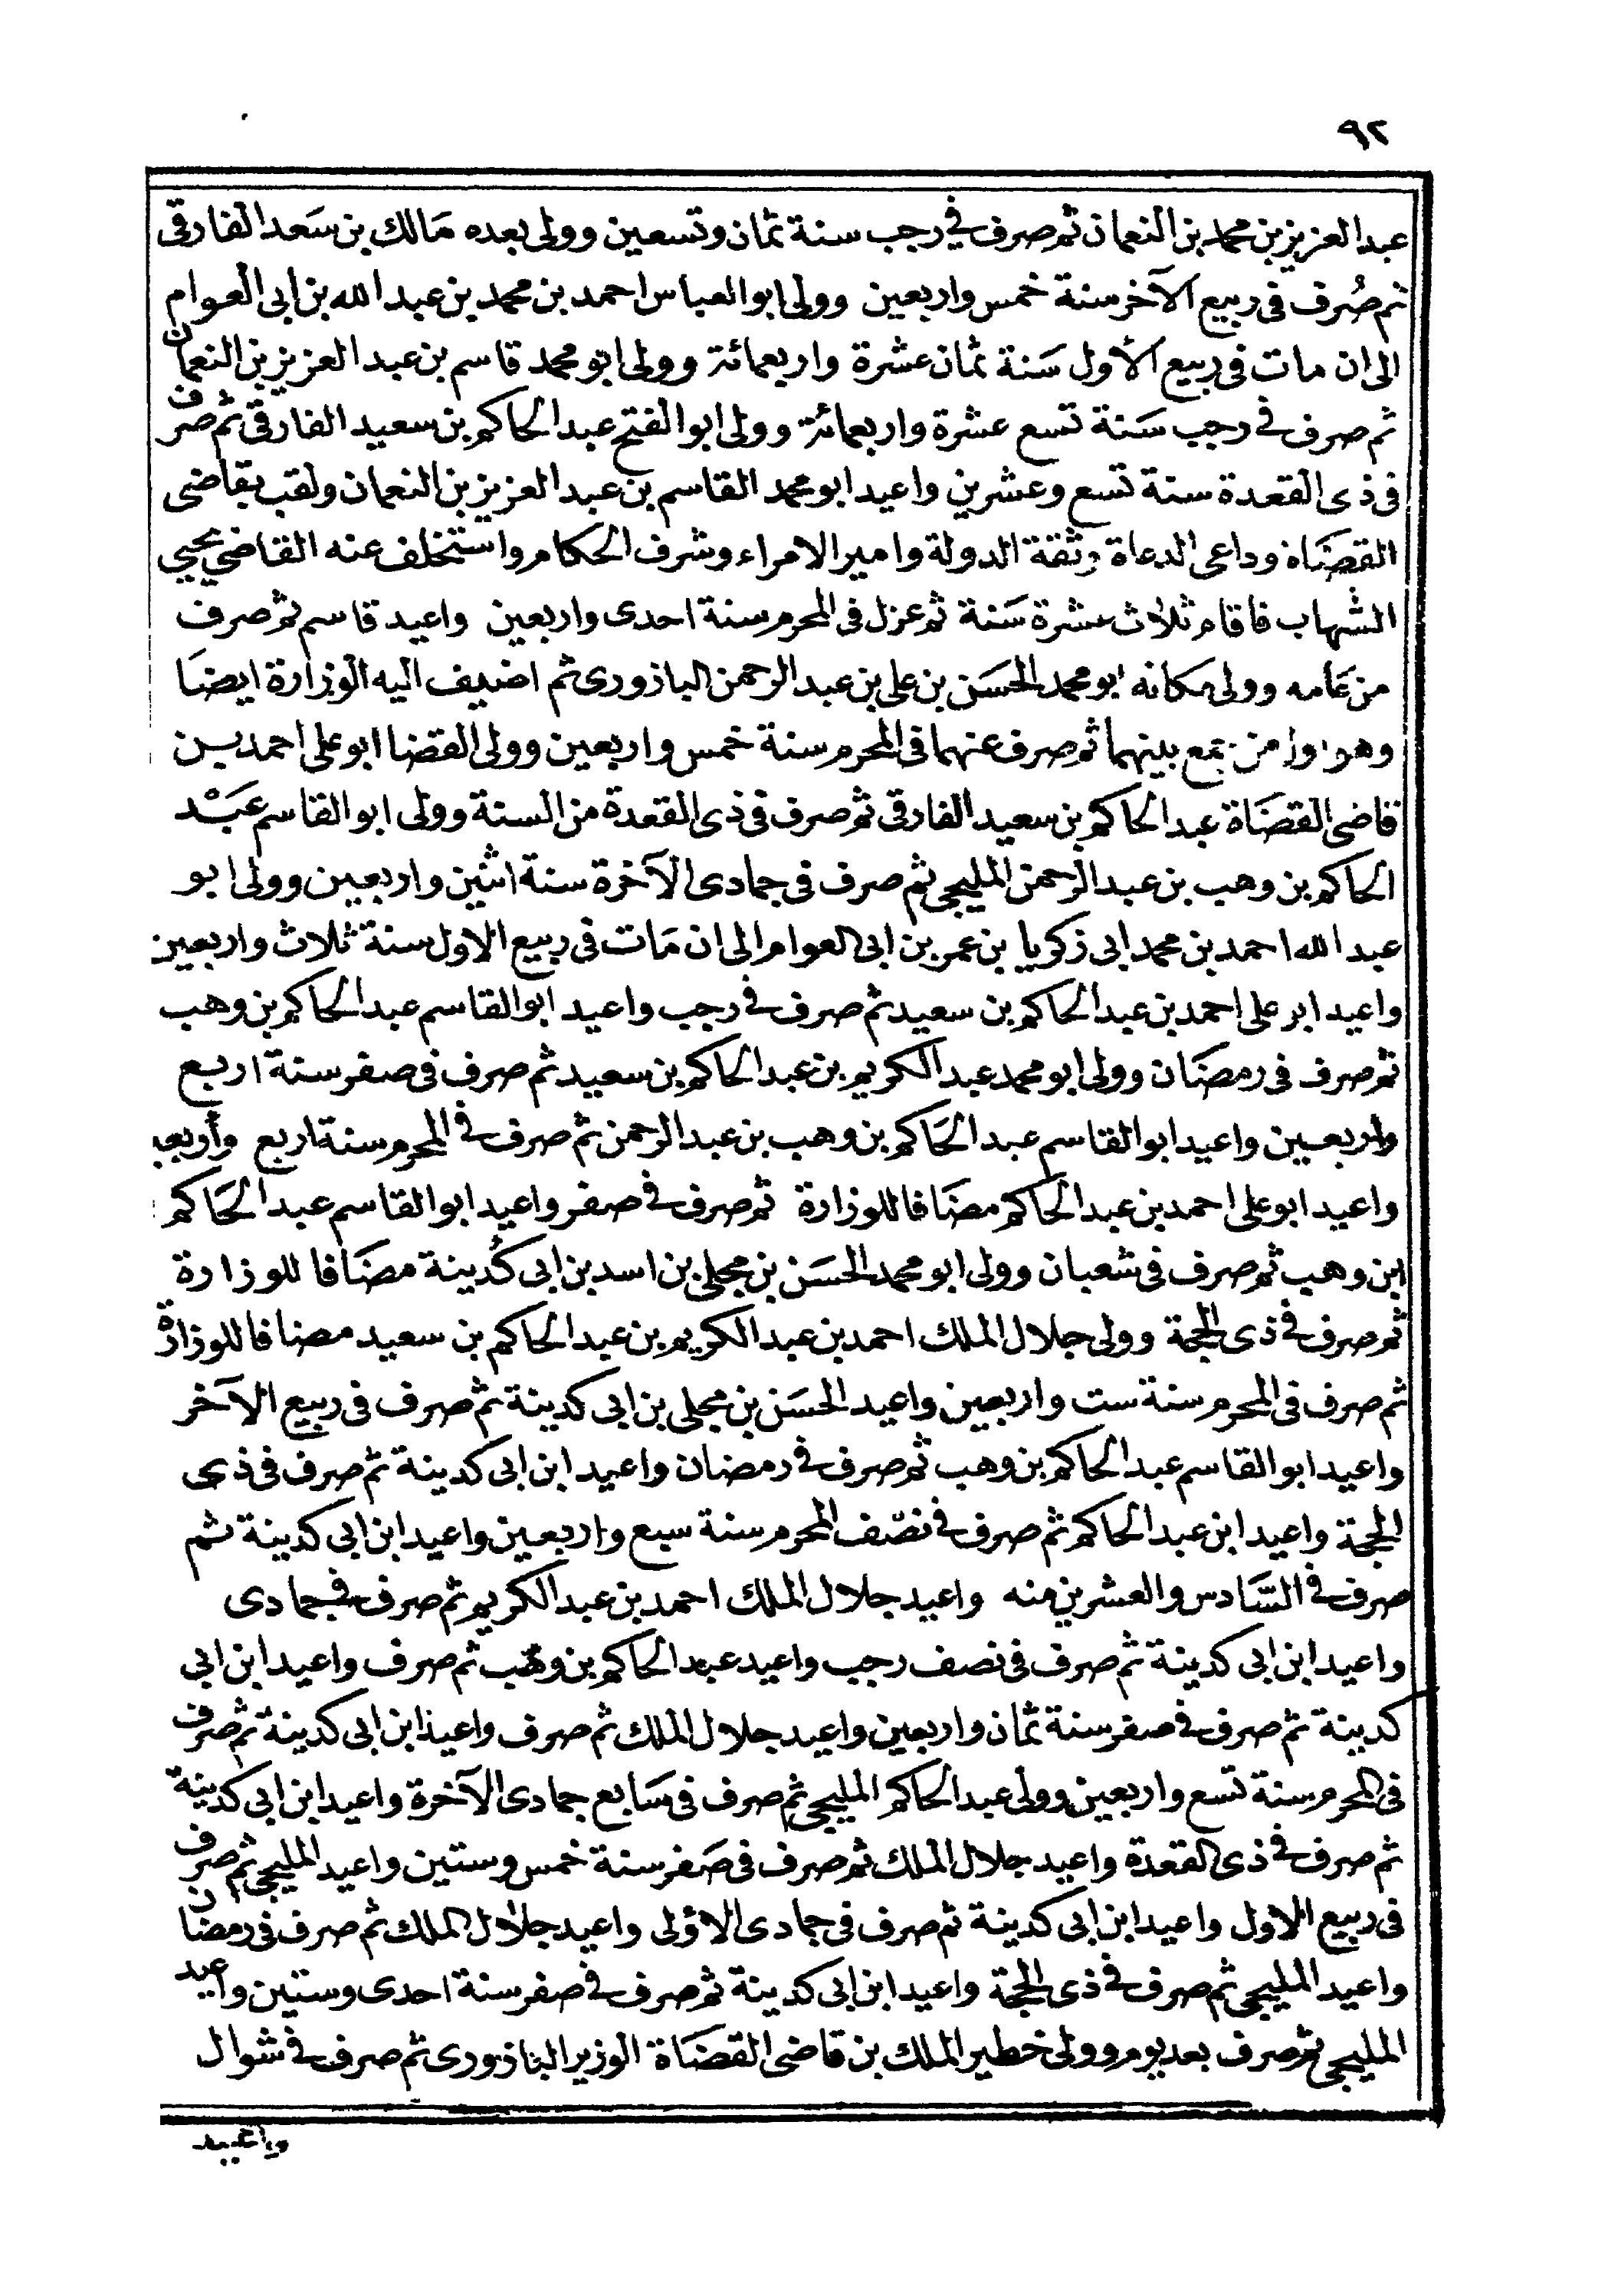 ٩٢
عبد العزيز بن محمد بن النعمان ثم صرف في رجب سنة ثمان وتسعين وولى بعده مَالك بن سَعد الفارقى
ثم صُرف فى ربيع الآخر سنة خمس واربعين وولى ابو العباس احمد بن محمد بن عبد الله بن ابى العوام
الى ان مات فى ربيع الأول سَنة ثمان عشرة واربعمائة وولى ابو محمد قاسم بن عبد العزيز بن النعمان
ثم صرف فى رجب سَنة تسع عشرة واربعمائة وولى ابو الفتح عبد الحاكم بن سعيد الفارقى ثم صرف
فى ذى القعدة سنة تسع وعشرين واعيد ابو محمد القاسم بن عبد العزيز بن النعمان ولقب بقاضى
القضَاه وداعى الدعاة وثقة الدولة وامير الامراء وشرف الحكام واستخلف عنه القاضى يحيى
الشهاب فاقام ثلاث عشرة سَنة ثم عزل فى المحرم سنة احدى واربعين واعيد قاسم ثم صرف
من عَامه وولى مكانه ابو محمد الحسَن بن على بن عبد الرحمن اليازورى ثم اضيف اليه الوزارة ايضَا
وهو اول من جمع بينهما ثم صرف عنهما فى المحرم سنة خمس واربعين وولى القضا ابو على احمد بن
قاضى القضَاة عبد الحاكم بن سعيد الفارقى ثم صرف فى ذى القعدة من السنة وولى ابو القاسم عَبْد
الحاكم بن وهب بن عبد الرحمن المليجى ثم صرف فى جمادى الآخرة سنة اثنين واربعين وولى ابو
عبد الله احمد بن محمد ابى زكريا بن عمر بن ابى العوام الى ان مَات فى ربيع الاول سنة ثلاث واربعين
واعيد ابو على احمد بن عبد الحاكم بن سعيد ثم صرف فى رجب واعيد ابو القاسم عبد الحاكم بن وهب
ثم صرف فى رمضَان وولى ابو محمد عبد الكريم بن عبد الحاكم بن سعيد ثم صرف فى صفر سنة اربع
واربعين واعيد ابو القاسم عبد الحَاكم بن وهب بن عبد الرحمن ثم صرف فى المحرم سنة اربع وأربعـ
واعيد ابو على احمد بن عبد الحاكم مضَافا للوزارة ثم صرف فى صفر واعيد ابو القاسم عبد الحَاكم
ابن وهب ثم صرف فى شعبان وولى ابو محمد الحسَن بن مجلى بن اسد بن ابى كُدينة مضَافا للوزارة
ثم صرف فى ذى الحجة وولى جلال الملك احمد بن عبد الكريم بن عبد الحاكم بن سعيد مضافا للوزارة
ثم صرف فى المحرم سنة ست واربعين واعيد الحسَن بن مجلى بن ابى كدينة ثم صرف فى ربيع الآخر
واعيد ابو القاسم عبد الحاكم بن وهب ثم صرف فى رمضان واعيد ابن ابى كدينة ثم صرف فى ذى
الحجة واعيد ابن عبد الحاكم ثم صرف فى نصف المحرم سنة سبع واربعين واعيد ابن ابى كدينة ثم
صرف فى السَّادس والعشرين منه واعيد جلال الملك احمد بن عبد الكريم ثم صرف فى جمادى
واعيد ابن ابى كدينة ثم صرف فى نصف رجب واعيد عبد الحاكم بن وهب ثم صرف واعيد ابن ابى
كدينة ثم صرف فى صفر سنة ثمان واربعين واعيد جلال الملك ثم صرف واعيد ابن ابى كدينة ثم صرف
فى المحرم سنة تسع واربعين وولى عبد الحاكم المليجى ثم صرف فى سَابع جمادى الآخرة واعيد ابن ابى كدينة
ثم صرف فى ذى القعدة واعيد جلال الملك ثم صرف فى صَفر سنة خمس وستين واعيد المليجى ثم صرف
فى ربيع الاول واعيد ابن ابى كدينة ثم صرف فى جمادى الاولى واعيد جلال الملك ثم صرف فى رمضان
واعيد المليجى ثم صرف فى ذى الحجة واعيد ابن ابى كدينة ثم صرف فى صفر سنة احدى وستين واعيد
المليجى ثم صرف بعد يوم وولى خطير الملك بن قاضى القضَاة الوزير اليازورى ثم صرف فى شوال
واعيد